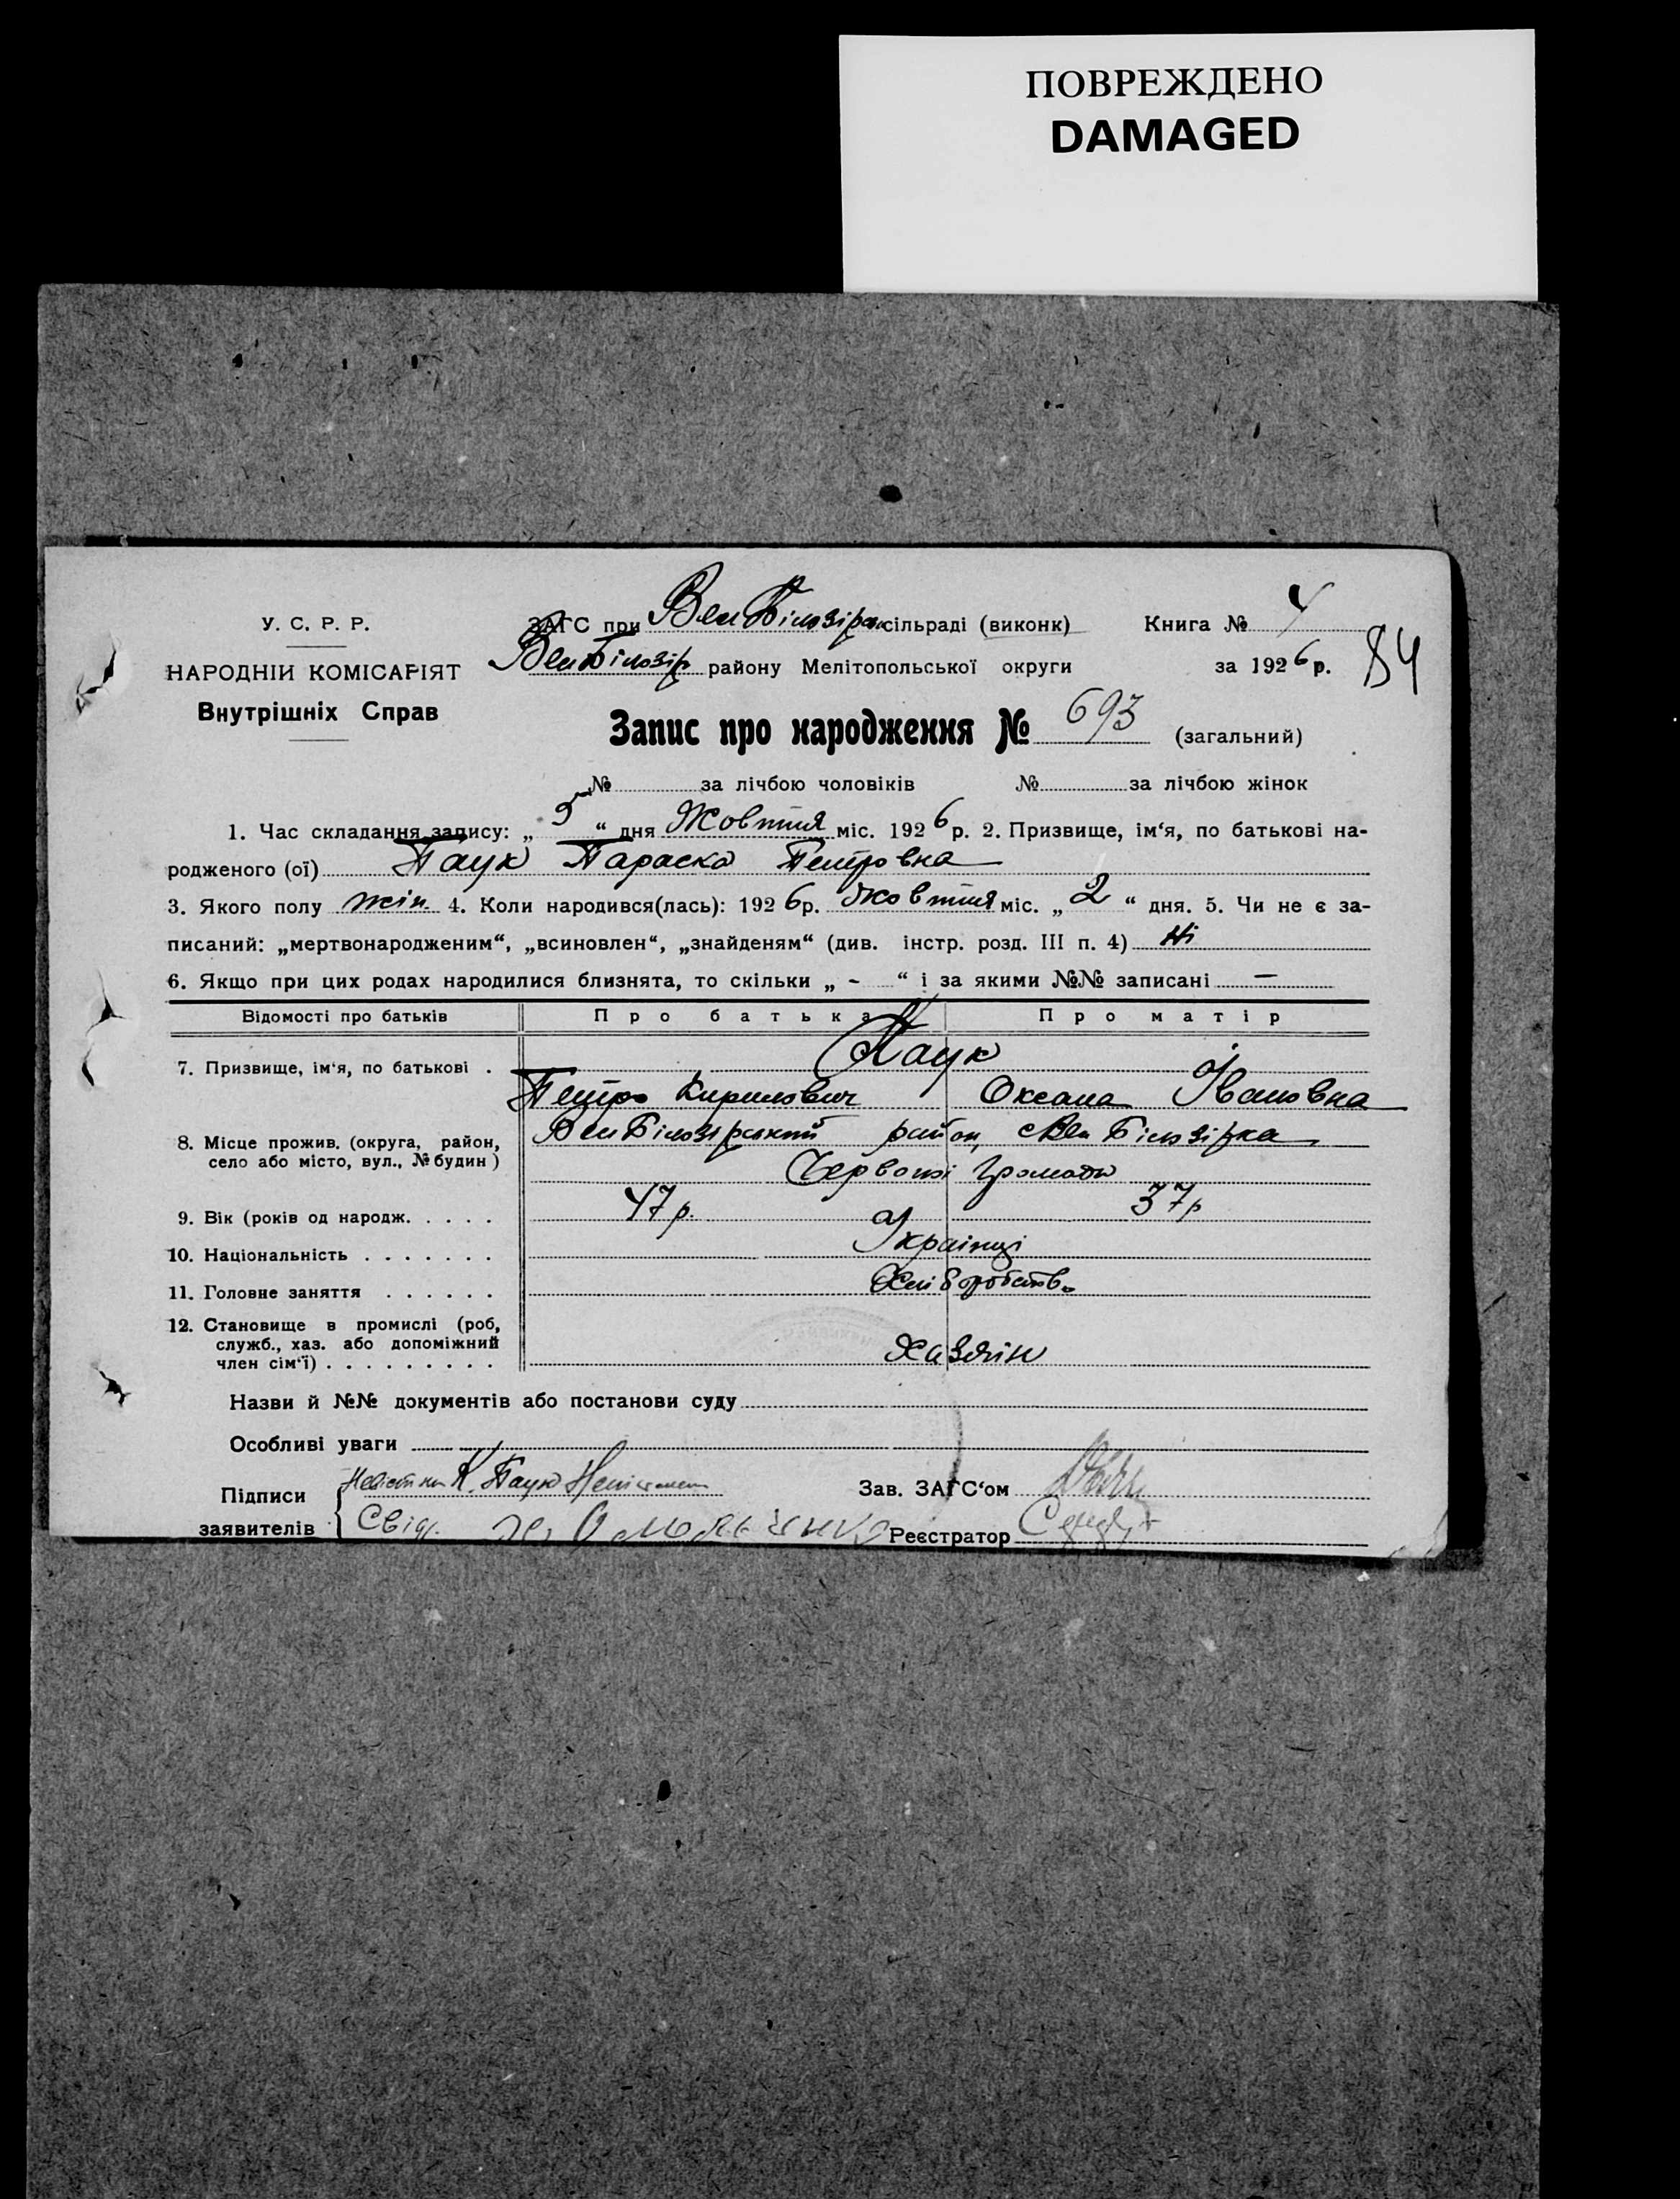 ПОВРЕЖДЕНО
DAMAGED
У. С. Р. Р.
НАРОДНІЙ КОМІСАРІЯТ
Внутрішніх Справ
ЗАГС при Вел Білозірськ сільраді (виконк)
Вел Білозір району Мелітопольської округи
Книга № 4
за 1926 р.
84
Запис про народження № 693 (загальний)
№ за лічбою чоловіків № за лічбою жінок
1. Час складання запису: „ 5 “ дня Жовтня міс. 1926 р. 2. Призвище, ім‘я, по батькові на-
родженого (ої) Паук Параска Петровна
3. Якого полу жін. 4. Коли народився(лась): 1926 р. Жовтня міс. „ 2 “ дня. 5. Чи не є за-
писаний: „мертвонародженим“, „всиновлен“, „знайденям“ (див. інстр. розд. III п. 4) Ні
6. Якщо при цих родах народилися близнята, то скільки „ - “ і за якими №№ записані —
Відомості про батьків Про батька Про матір
7. Призвище, ім‘я, по батькові . Паук
Петро Кирилович Оксана Івановна
8. Місце прожив. (округа, район, село або місто, вул., № будин) Вел Білозірський район, с Вел Білозірка
Червоної Громади
9. Вік (років од народж. . . . . 47 р. 37 р
10. Національність . . . . . . . Українці
11. Головне заняття . . . . . . Хліборобств
12. Становище в промислі (роб,
служб., хаз. або допоміжний
член сім‘ї) . . . . . . . . . Хазяін
Назви й №№ документів або постанови суду
Особливі уваги
Підписи К. Паук
заявителів Свід.
Зав. ЗАГС‘ом
Реєстратор